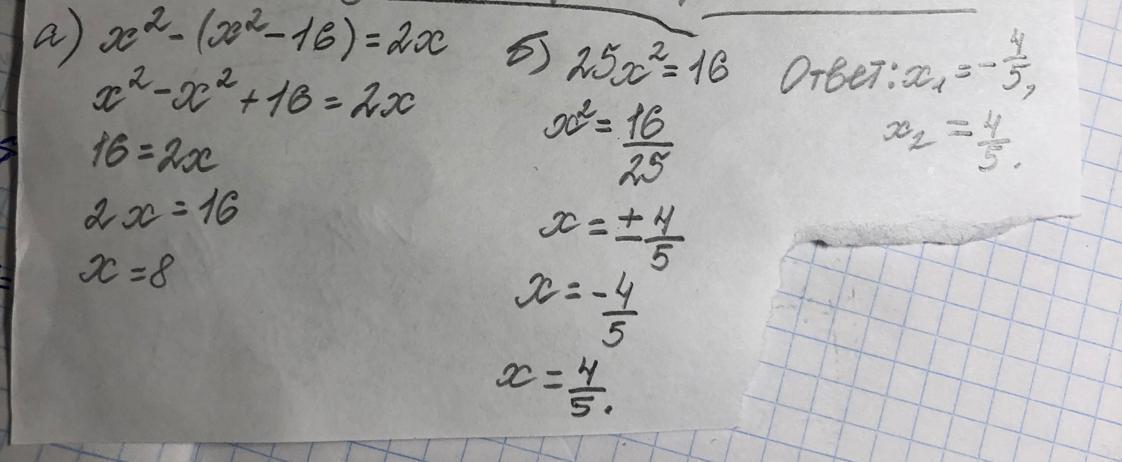 а) x² - (x² - 16) = 2x
x² - x² + 16 = 2x
16 = 2x
2x = 16
x = 8
б) 25x² = 16
x² = 16/25
x = ± 4/5
x = - 4/5
x = 4/5.
Ответ: x₁ = - 4/5,
x₂ = 4/5.